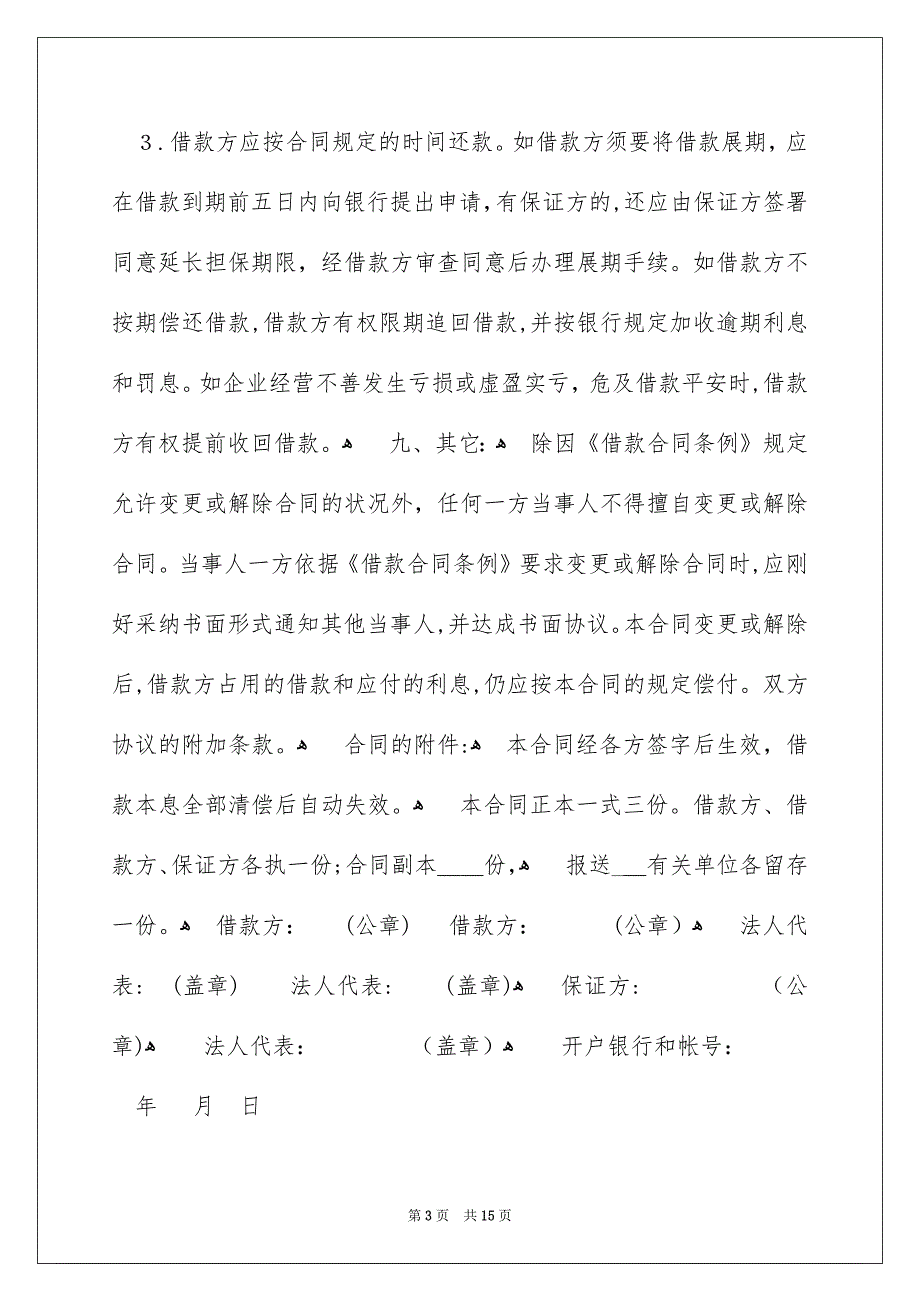 3.借款方应按合同规定的时间还款。如借款方须要将借款展期，应
在借款到期前五日内向银行提出申请,有保证方的,还应由保证方签署
同意延长担保期限，经借款方审查同意后办理展期手续。如借款方不
按期偿还借款,借款方有权限期追回借款,并按银行规定加收逾期利息
和罚息。如企业经营不善发生亏损或虚盈实亏，危及借款平安时,借款
方有权提前收回借款。ﻫ 九、其它:ﻫ 除因《借款合同条例》规定
允许变更或解除合同的状况外，任何一方当事人不得擅自变更或解除
合同。当事人一方依据《借款合同条例》要求变更或解除合同时,应刚
好采纳书面形式通知其他当事人,并达成书面协议。本合同变更或解除
后,借款方占用的借款和应付的利息,仍应按本合同的规定偿付。双方
协议的附加条款。ﻫ 合同的附件:ﻫ 本合同经各方签字后生效，借
款本息全部清偿后自动失效。ﻫ 本合同正本一式三份。借款方、借
款方、保证方各执一份;合同副本____份，ﻫ 报送___有关单位各留存
一份。ﻫ 借款方： (公章) 借款方： (公章）ﻫ 法人代
表: (盖章) 法人代表: (盖章)ﻫ 保证方: （公
章)ﻫ 法人代表： （盖章）ﻫ 开户银行和帐号：
年 月 日
第 3 页 共 15 页